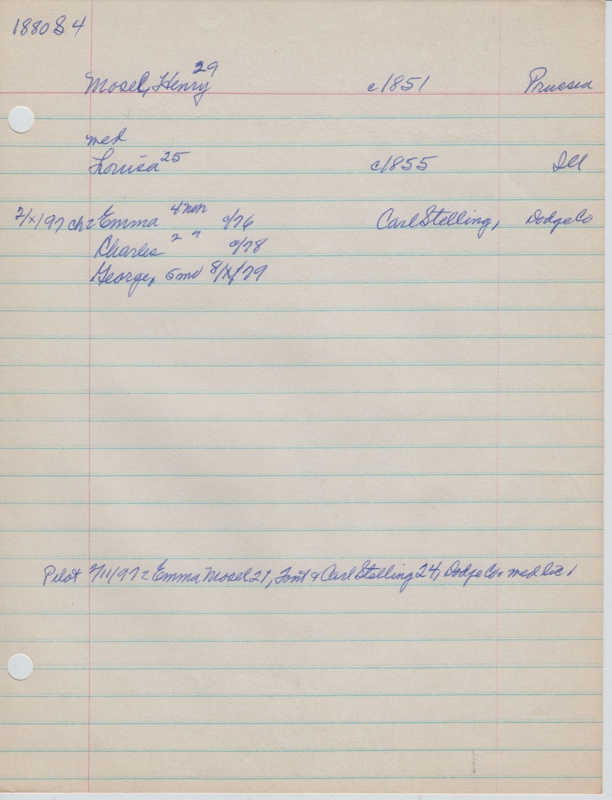 1880 S 4
Mosel, Henry 29 c/1851 Prussia
med
Louisa 25 c/1855 Ill
2/x/97 ch: Emma 4 non c/76 Carl Stelling, Dodge Co
Charles 2 " c/78
George, 5 mo 8/x/79
Pilot 2/11/97: Emma Mosel 21, Font & Carl Stelling 24, Dodge Co, med lic 1